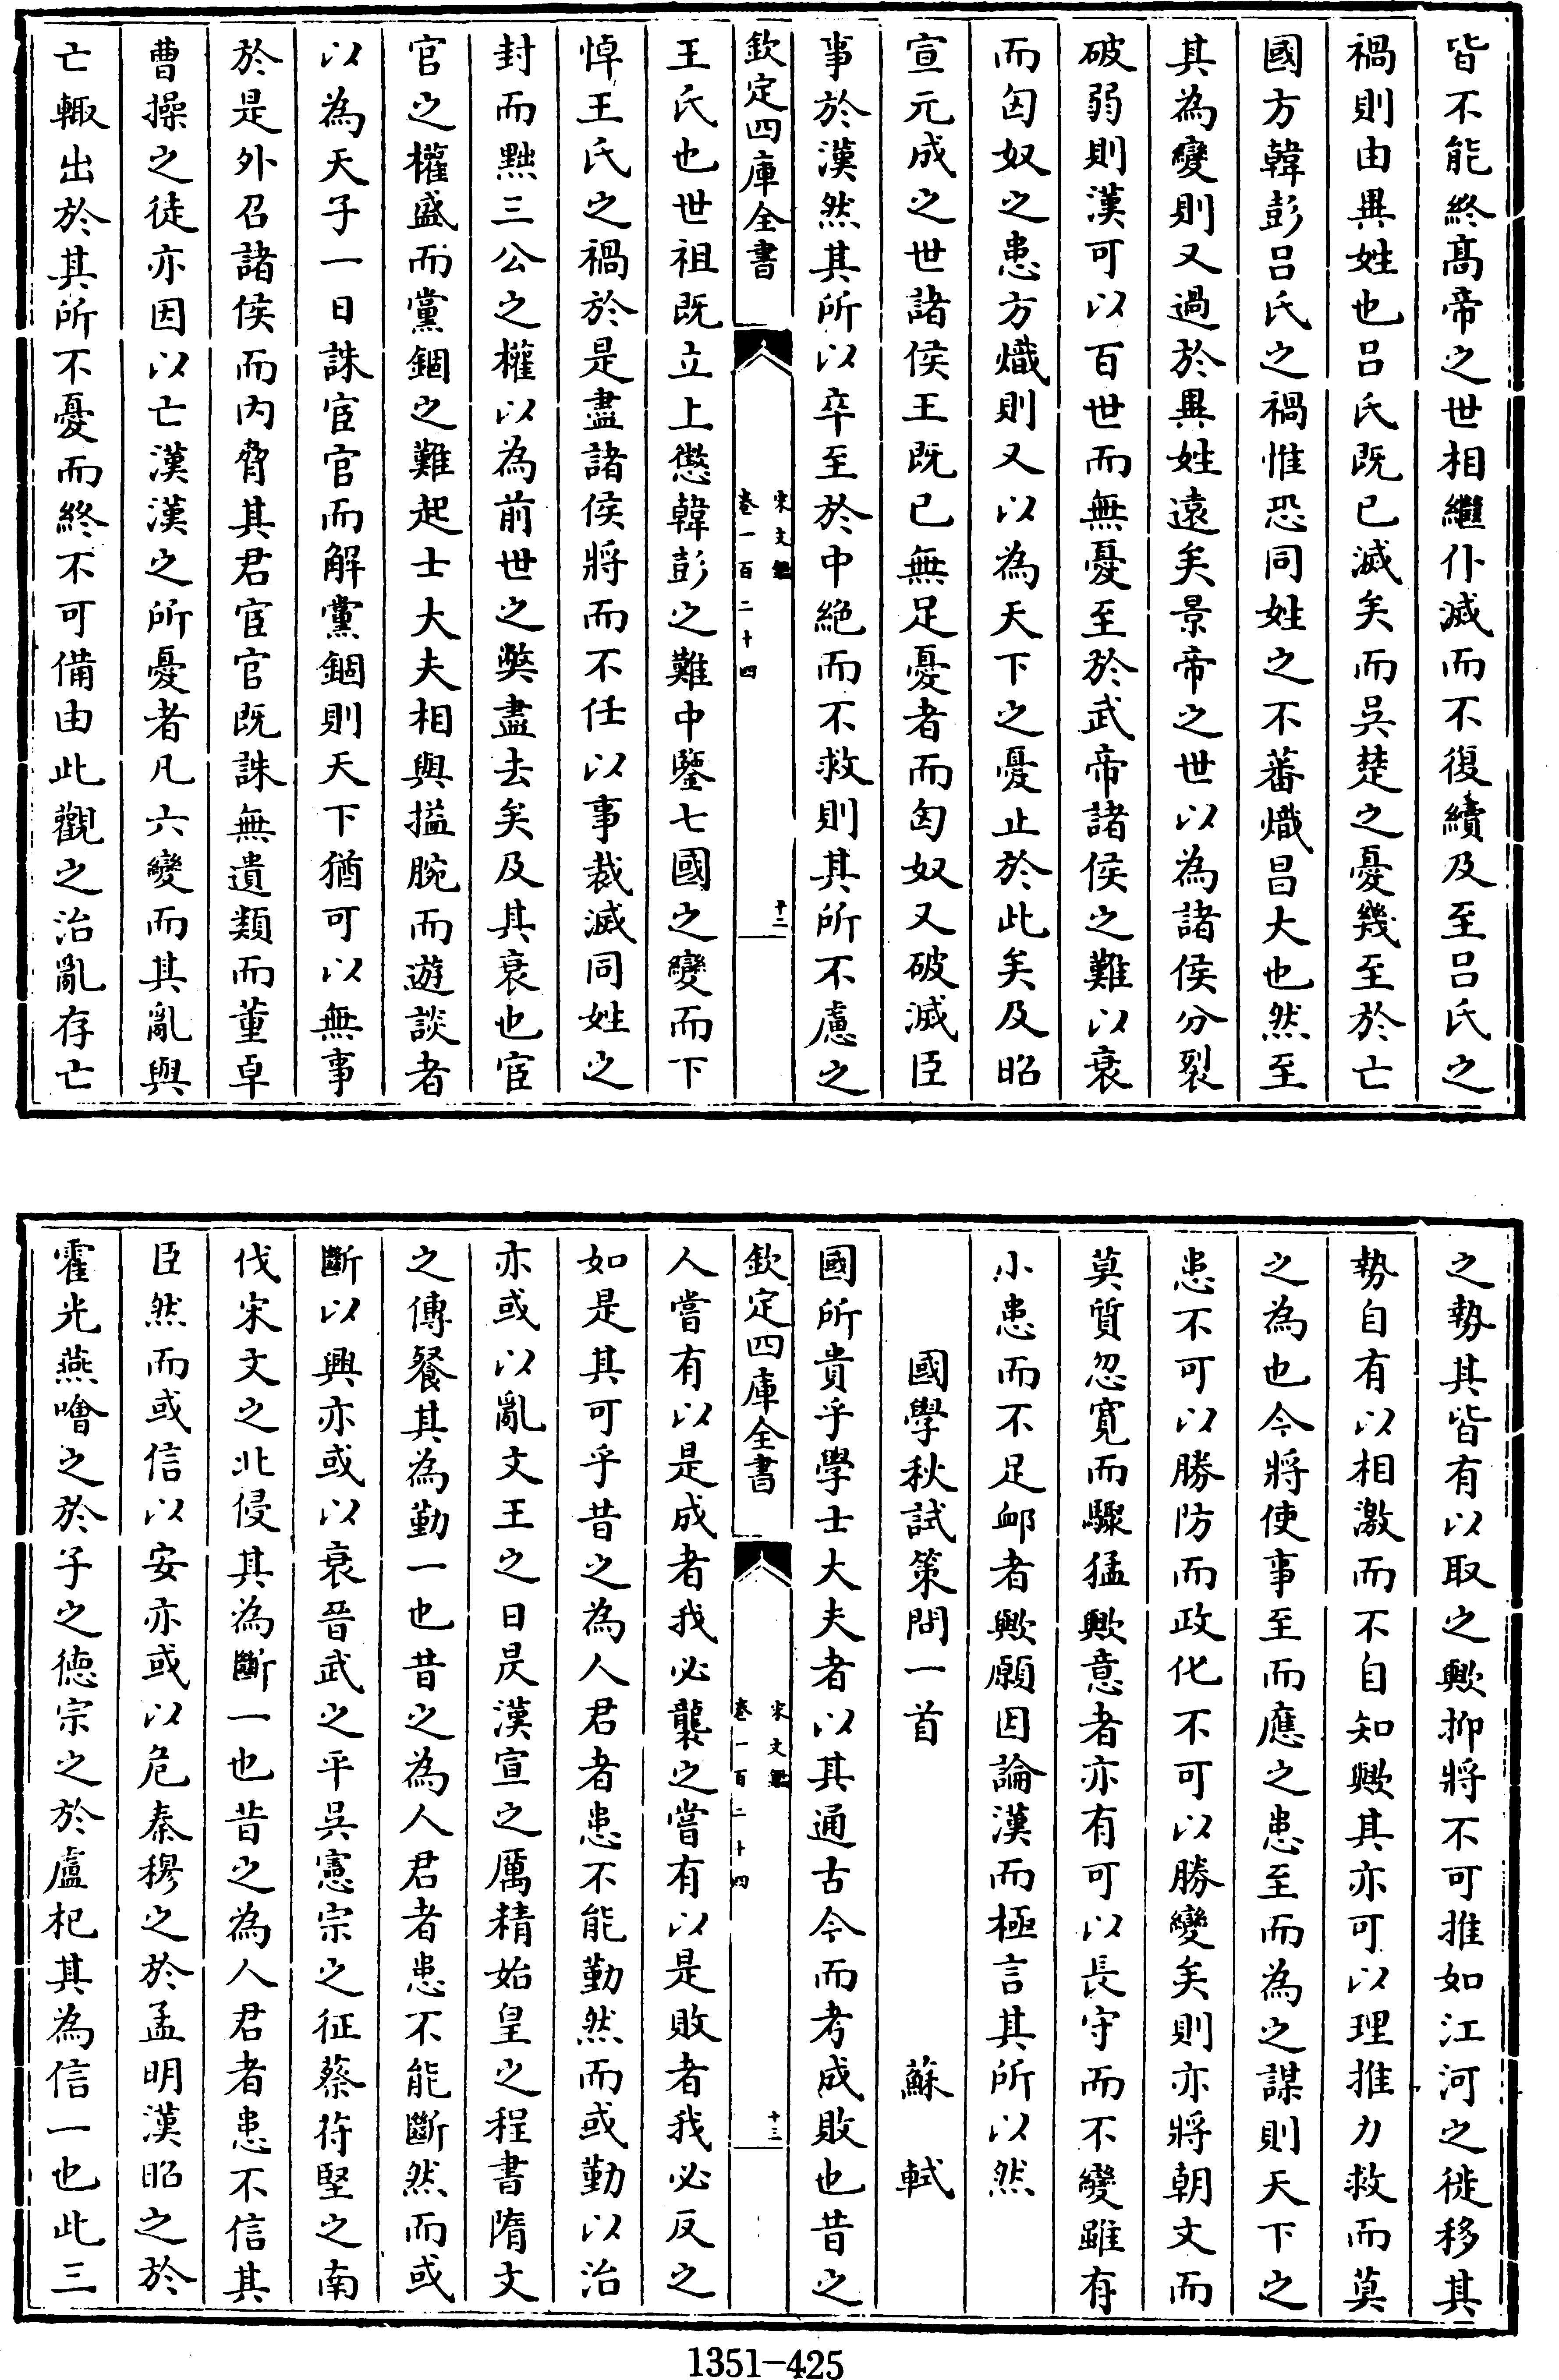 皆不能終髙帝之世相繼仆滅而不復續及至吕氏之
禍則由異姓也吕氏既已滅矣而吳楚之憂幾至於亡
國方韓彭吕氏之禍惟恐同姓之不蕃熾昌大也然至
其為變則又過於異姓逺矣景帝之世以為諸侯分裂
破弱則漢可以百世而無憂至於武帝諸侯之難以衰
而匈奴之患方熾則又以為天下之憂止於此矣及昭
宣元成之世諸侯王既已無足憂者而匈奴又破滅臣
事於漢然其所以卒至於中絶而不救則其所不慮之
欽定四庫全書
宋文鑑
卷一百二十四
十二
王氏也世祖既立上懲韓彭之難中鑒七國之變而下
悼王氏之禍於是盡諸侯將而不任以事裁滅同姓之
封而黜三公之權以為前世之弊盡去矣及其衰也宦
官之權盛而黨錮之難起士大夫相與搤腕而遊談者
以為天子一日誅宦官而解黨錮則天下猶可以無事
於是外召諸侯而内脅其君宦官既誅無遺類而董卓
曹操之徒亦因以亡漢漢之所憂者凡六變而其亂與
亡輙出於其所不憂而終不可備由此觀之治亂存亡
之勢其皆有以取之歟抑將不可推如江河之徙移其
勢自有以相激而不自知歟其亦可以理推力救而莫
之為也今將使事至而應之患至而為之謀則天下之
患不可以勝防而政化不可以勝變矣則亦將朝文而
莫質忽寛而驟猛歟意者亦有可以長守而不變雖有
小患而不足䘏者歟願因論漢而極言其所以然
國學秋試策問一首　蘇軾
國所貴乎學士大夫者以其通古今而考成敗也昔之
欽定四庫全書
宋文鑑
卷一百二十四
十三
人嘗有以是成者我必襲之嘗有以是敗者我必反之
如是其可乎昔之為人君者患不能勤然而或勤以治
亦或以亂文王之日昃漢宣之厲精始皇之程書隋文
之傳餐其為勤一也昔之為人君者患不能斷然而或
斷以興亦或以衰晉武之平吳憲宗之征蔡苻堅之南
伐宋文之北侵其為斷一也昔之為人君者患不信其
臣然而或信以安亦或以危秦穆之於孟明漢昭之於
霍光燕噲之於子之徳宗之於盧杞其為信一也此三
1351-425